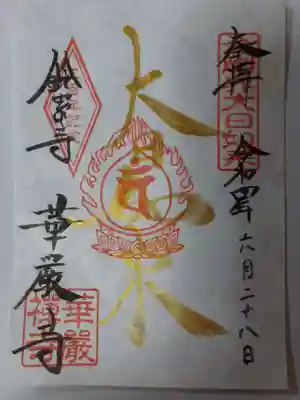 奉拝
令和四年六月二十八日
大日如来
鈴虫寺
華厳寺
華厳
禅寺